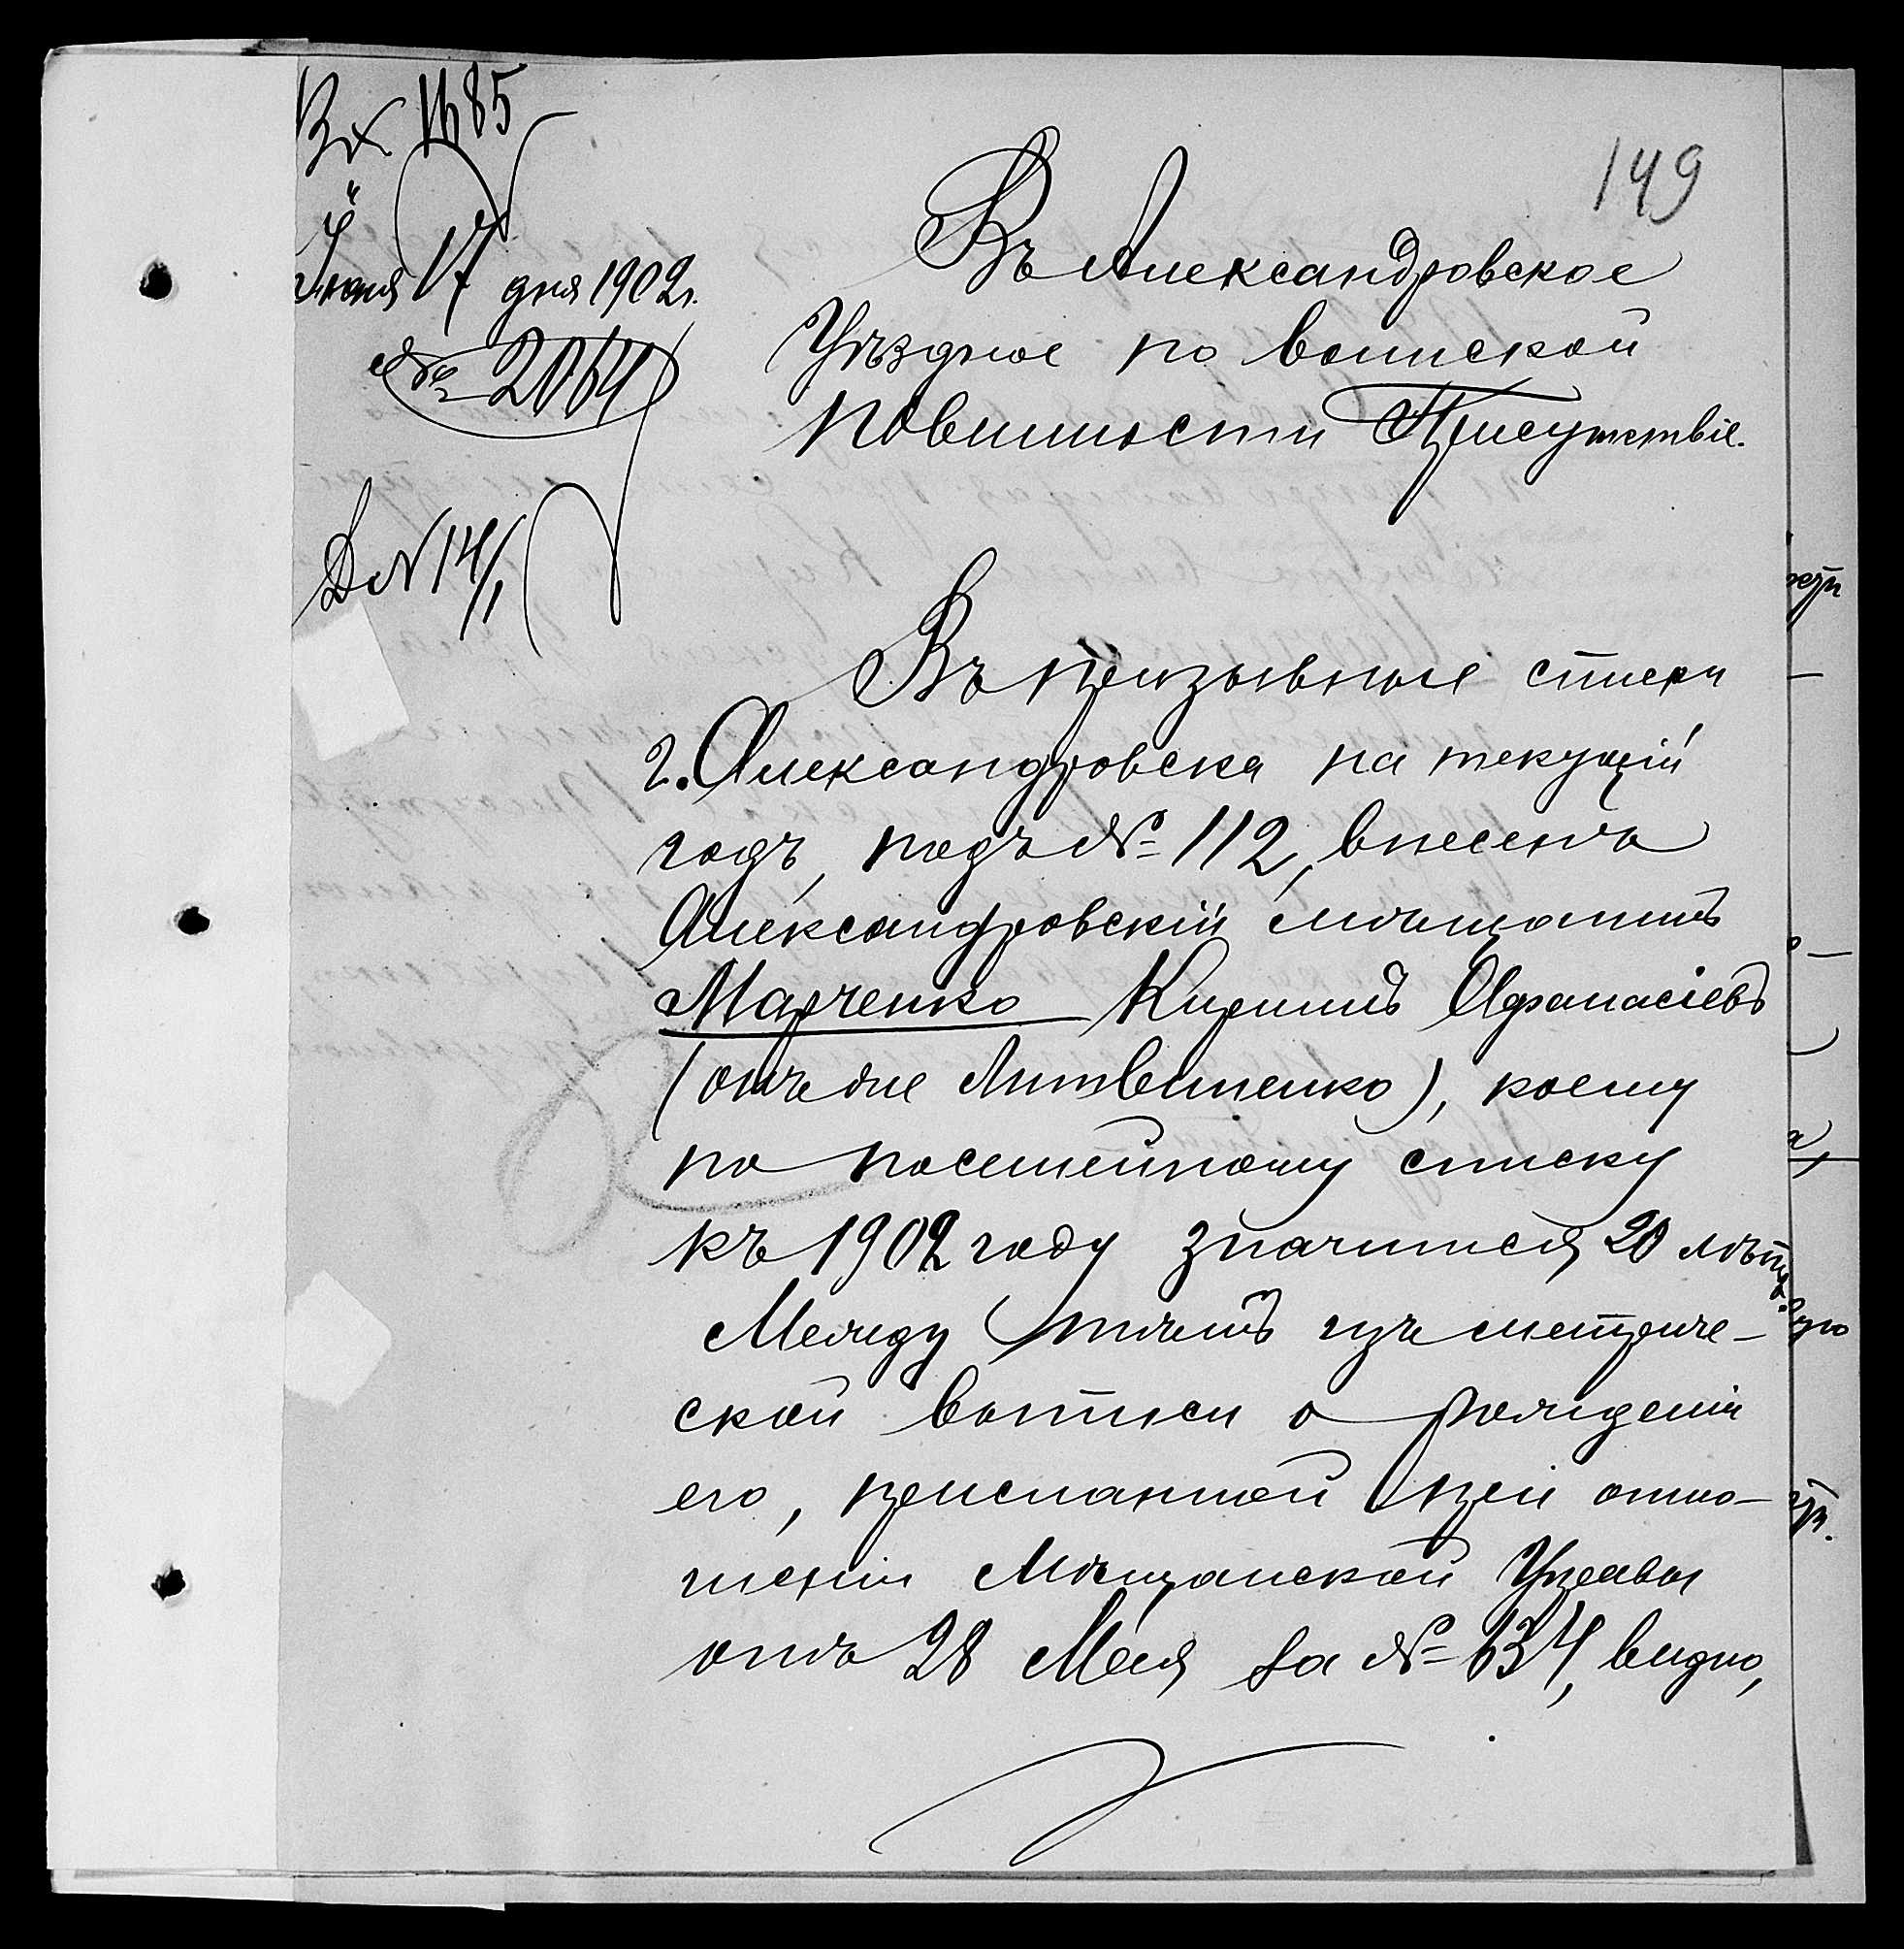 Вх 1685
149
Іюня 17 дня 1902 г.
№ 2064
Д № 14/1
Въ Александровское
Уѣздное по воинской
повинности Присутствіе.
Въ призывные списки
г. Александровска на текущій
годъ, подъ № 112, внесенъ
Александровскій мѣщанинъ
Марченко Кириллъ Афанасіевъ
(онъ же Литвиненко), коему
по посемейному списку
къ 1902 году значится 20 лѣтъ.
Между тѣмъ изъ метриче-
ской выписи о рожденіи
его, присланной при отно-
шеніи Мѣщанской Управы
отъ 28 Мая за № 634, видно,